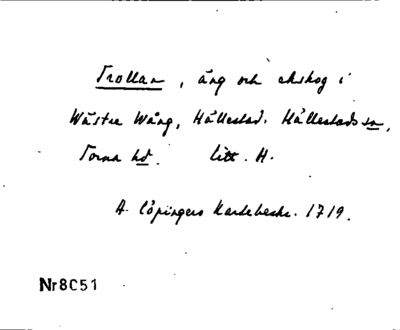 Trollan, äng och ekskog i
Wästra Wång, Hällestad. Hällestads sn,
Torna hd. litt. H.
A. Löpingers Kartebeskr. 1719.
Nr8C51